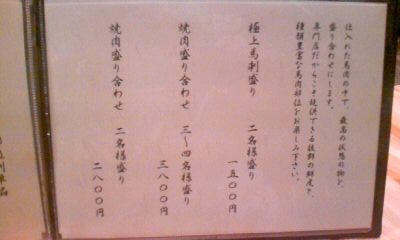 仕入れた馬肉の中で、最高の状態の物を、
盛り合わせにします。
専門店だからこそ提供できる抜群の鮮度と、
種類豊富な馬肉部位をお楽しみ下さい。
極上馬刺盛り 二名様盛り
一五〇〇円
焼肉盛り合わせ 三〜四名様盛り
三八〇〇円
焼肉盛り合わせ 二名様盛り
二八〇〇円